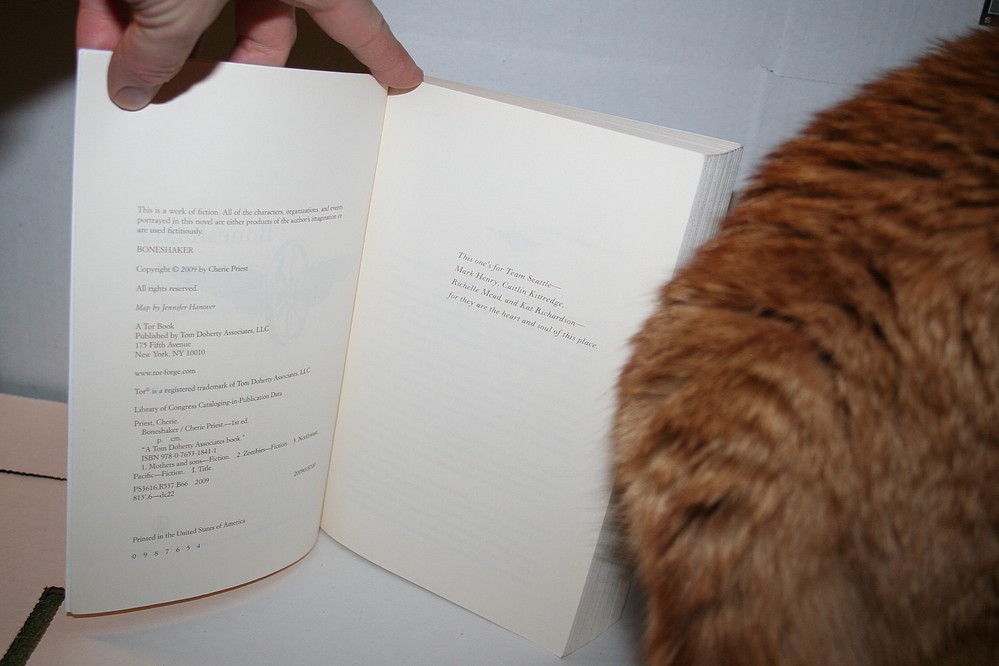 This is a work of fiction. All of the characters, organizations, and events
portrayed in this novel are either products of the author's imagination or
are used fictitiously.
BONESHAKER
Copyright © 2009 by Cherie Priest
All rights reserved.
Map by Jennifer Hanover
A Tor Book
Published by Tom Doherty Associates, LLC
175 Fifth Avenue
New York, NY 10010
www.tor-forge.com
Tor® is a registered trademark of Tom Doherty Associates, LLC
Library of Congress Cataloging-in-Publication Data
Priest, Cherie.
Boneshaker / Cherie Priest.—1st ed
p. cm.
"A Tom Doherty Associates book."
ISBN 978-0-7653-1841-1
1. Mothers and sons—Fiction. 2. Zombies—Fiction. 3. Northwest
Pacific—Fiction. I. Title.
PS3616.R537 B66 2009
813'.6—dc22
Printed in the United States of America
0 9 8 7 6 5 4
This one's for Team Seattle—
Mark Henry, Caitlin Kittredge,
Richelle Mead, and Kat Richardson—
for they are the heart and soul of this place.